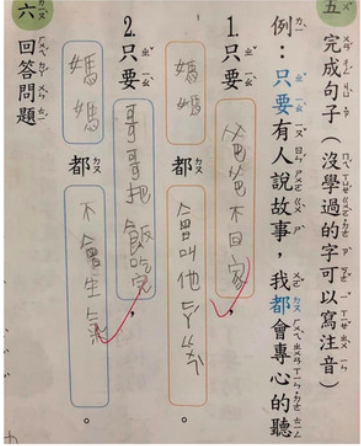 五 完成句子(沒學過的字可以寫注音)
例:只要有人說故事,我都會專心的聽
1.只要爸爸不回家,
媽媽都會叫他。
2.只要哥哥把飯吃完,
媽媽都不會生氣。
六 回答問題